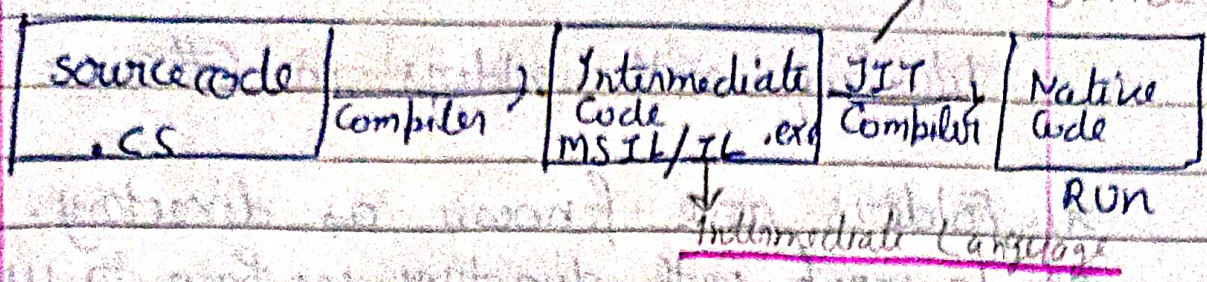 sourcecode
.CS
Compiler
Intermediate
Code
MSIL/IL .exe
JIT
Compiler
Native
Code
RUn
Intermediate Language